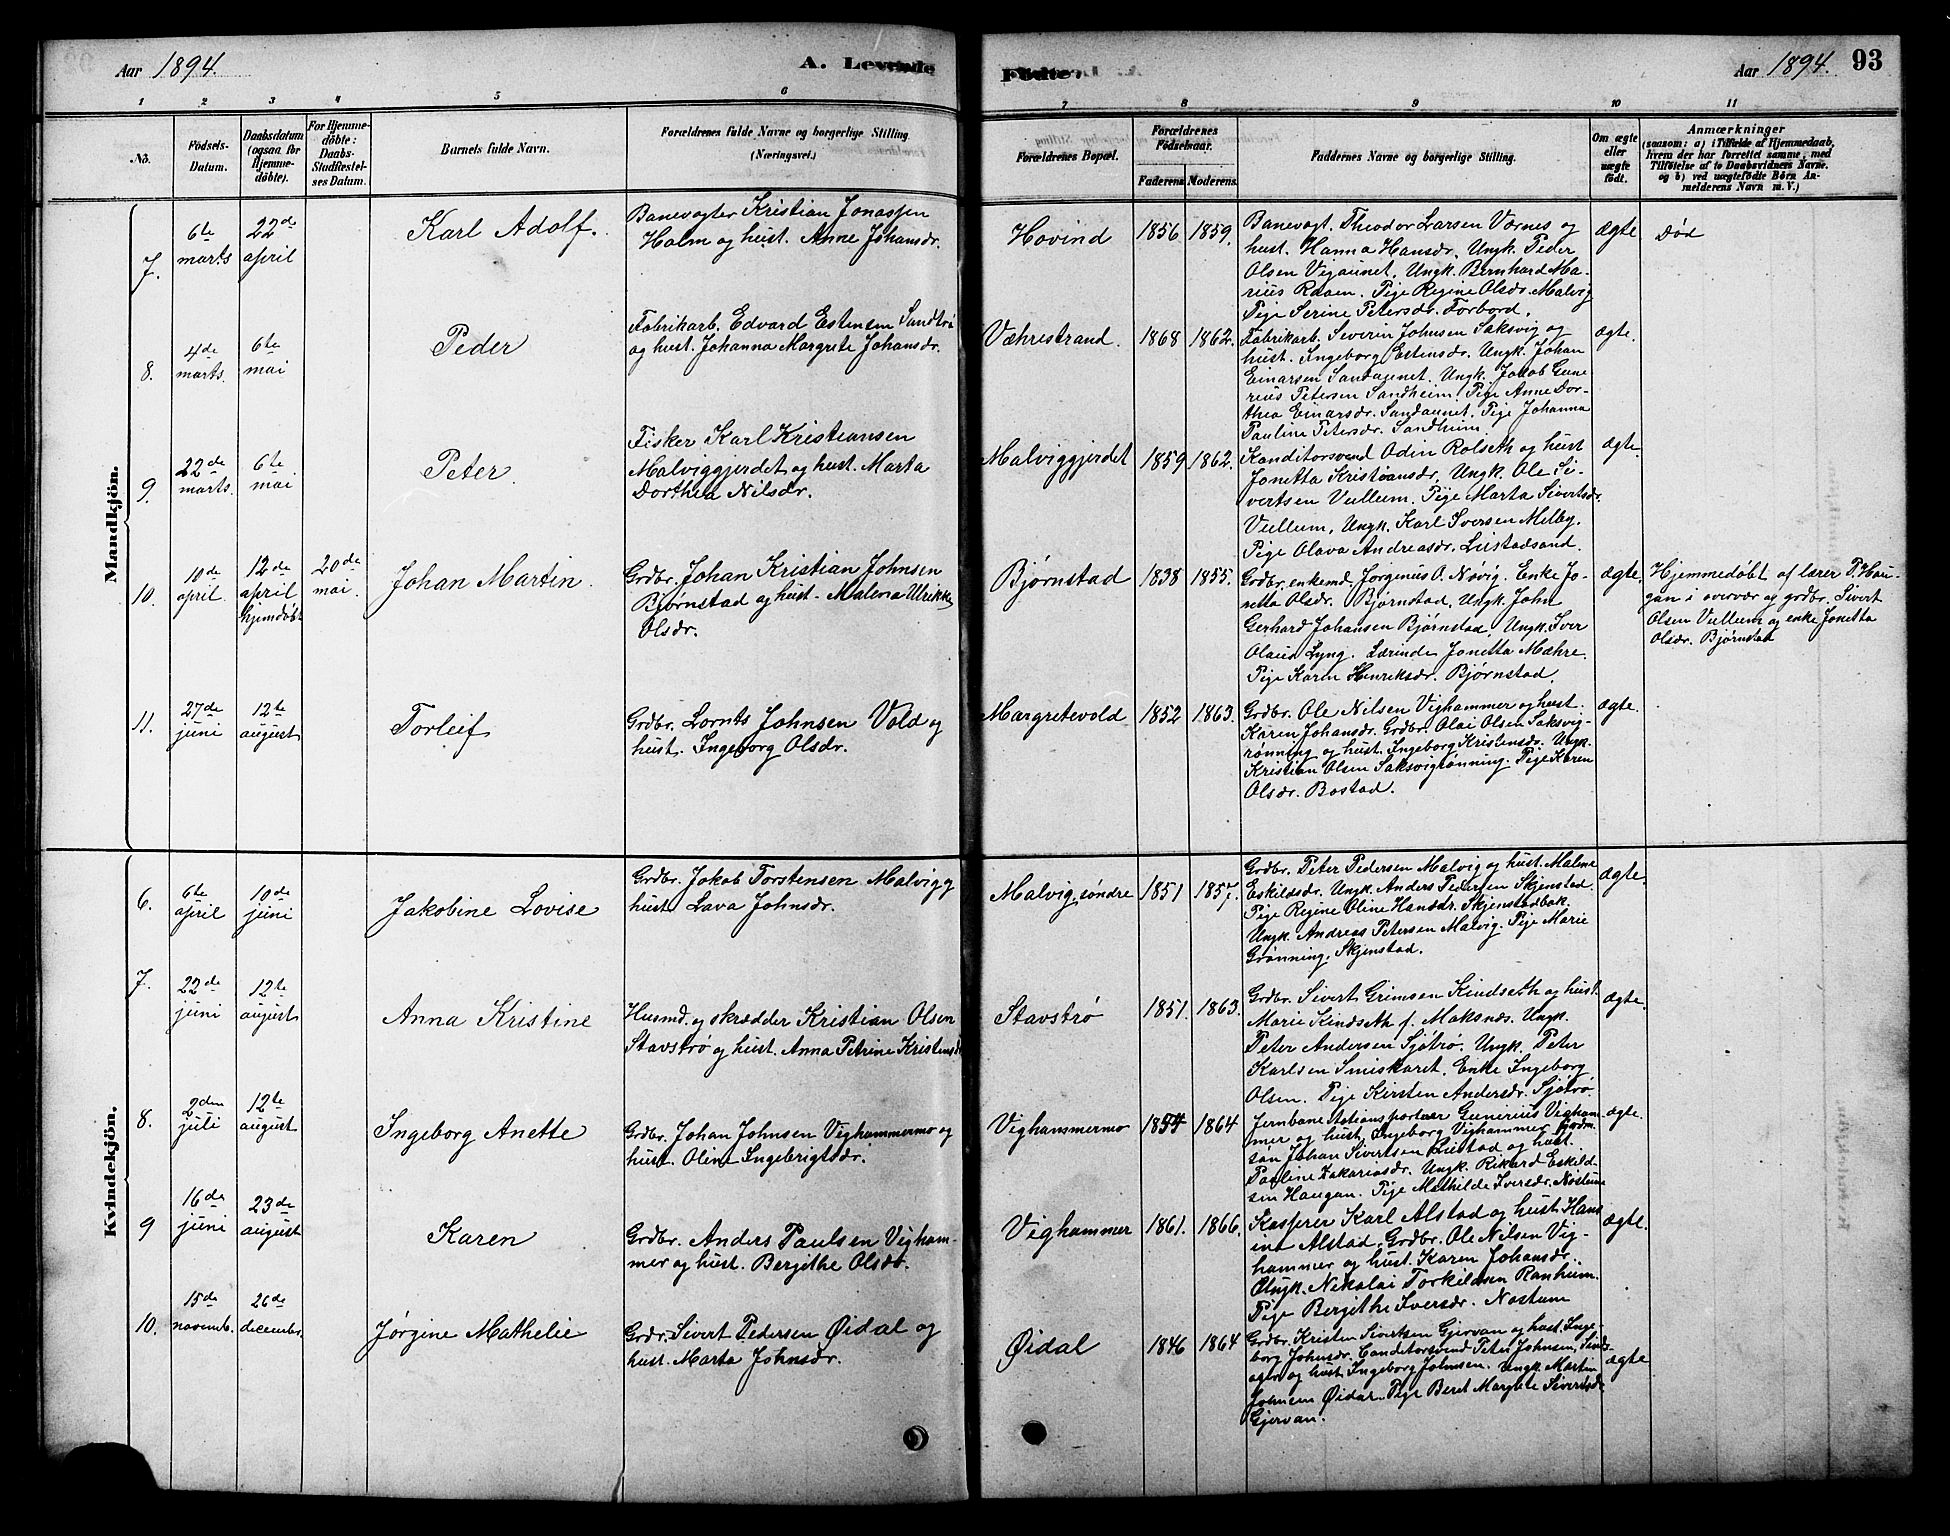 Aar 1894.
A. Levende
1 2 3 4 5 6
No.
Fødsels-
Datum.
Daabsdatum
(ogsaa for
Hjemme-
døbte).
For Hjemme-
døbte:
Daabs-
Stadfæstel-
ses Datum.
Barnets fulde Navn.
Forældrenes fulde Navne og borgerlige Stilling.
(Næringsvei.)
Mandkjön.
7.
6te
marts
22de
april
Karl Adolf.
Banevogter Kristian Jonassen
Holm og hust. Anne Johansdr.
8.
4de
marts.
6te
mai
Peder
Fabrikarb. Edvard Estensen Sandtrø
og hust. Johanna Margrete Johansdr.
9.
22de
marts.
6te
mai
Peter.
Fisker Karl Kristiansen
Malviggjerdet og hust. Marta
Dorthea Nilsdr.
10.
10de
april.
12de
april
Hjemdøbt
20de
mai
Johan Martin.
Grdbr. Johan Kristian Johnsen
Bjørnstad og hust. Malena Ulrikke
Olsdr.
11.
27de
juni
12te
august
Torleif
Grdbr. Lornts Johnsen Vold og
hust. Ingeborg Olsdr.
Kvindekjön.
6.
6te
april
10de
juni
Jakobine Lovise
Grdbr. Jakob Torstensen Malvig
hust. Lava Johnsdr.
7.
22de
juni
12te
august
Anna Kristine
Husmd. og skrædder Kristian Olsen
Stavstrø og hust. Anna Petrine Kristensd
8.
2den
juli
12te
august
Ingeborg Anette
Grdbr. Johan Johnsen Vighammermo og
hust. Oline Ingebrigtsdr.
9
16de
juni
23de
august
Karen
Grdbr. Anders Paulsen Vigham-
mer og hust. Bergithe Olsdr.
10.
15de
novemb.
26de
decembr.
Jørgine Mathelie
Grdbr. Sivert Pedersen Øidal og
hust. Marta Johnsdr.
Födte.
Aar 1894.
93
7 8 9 10 11
Forældrenes Bopæl.
Forældrenes
Födselsaar.
Faderens. Moderens.
Faddernes Navne og borgerlige Stilling.
Om ægte
eller
uægte
født.
Anmærkninger
(saasom: a) i Tilfælde af Hjemmedaab,
hvem der har forrettet samme, med
Tilføielse af to Daabsvidners Navne,
og b) ved uægtefødte Børn An-
melderens Navn m. V.)
Hovind 1856 1859.
Banevogt. Theodor Larsen Værnes og
hust. Hanna Hansdr. Ungk. Peder
Olsen Vigaunet. Ungk. Bernhard Ma-
rius Raaen. Pige Regine Olsdr. Malvig
Pige Serine Petersdr. Forbord.
ægte Død
Væhrestrand. 1868 1862.
Fabrikarb. Severin Johnsen Saksvig og
hust. Ingeborg Estensdr. Ungk. Johan
Einarsen Sandaunet. Ungk. Jakob Gune-
rius Petersen Sandheim. Pige Anne Dor-
thea Einarsdr. Sandaunet. Pige Johanna
Pauline Petersdr. Sandheim.
ægte.
Malviggjerdet 1859 1862.
Konditorsvend Odin Rolseth og hust
Jonetta Kristiansdr. Ungk. Ole Si-
vertsen Vullum. Pige Marta Sivertsdr.
Vullum. Ungk. Karl Iversen Melby.
Pige Olava Andreasdr. Leistadsand.
ægte.
Bjørnstad 1838 1855.
Grdbr. enkemd. Jørginus O. Nøvig. Enke Jo-
netta Olsdr. Bjørnstad. Ungk. John
Gerhard Johansen Bjørnstad. Ungk. Iver
Olaus Lyng. Lærinde Jonetta Mæhre.
Pige Karen Henriksdr. Bjørnstad.
ægte.
Hjemmedøbt af lærer P. Hau-
gan i overvær og grdbr. Sivert
Olsen Vullum og enke Jonetta
Olsdr. Bjørnstad
Margretevold 1852 1863.
Grdbr. Ole Nilsen Vighammer og hust.
Karen Johansdr. Grdbr. Olai Olsen Saksvig-
rønning og hust. Ingeborg Kristensdr. Ungk.
Kristian Olsen Saksvigrønning. Pige Karen
Olsdr. Bostad.
ægte.
Malvig, søndre 1851 1857.
Grdbr. Peter Pedersen Malvig og hust. Malene
Eskildsdr. Ungk. Anders Pedersen Skjenstad.
Pige Regine Oline Hansdr. Skjenstadbak.
Ungk. Andreas Petersen Malvig. Pige Marie
Grønning. Skjenstad.
ægte.
Stavstrø 1851. 1863.
Grdbr. Sivert Grimsen Kindseth og hust.
Marie Kindseth f. Maksnæs. Ungk.
Peter Andersen Sjøtrø. Ungk. Peter
Karlsen Smiskaret. Enke Ingeborg
Olsen. Pige Kirsten Andersdr. Sjøtrø.
ægte.
Vighammermo 1854 1864
Jernbane stationsportør Gunerius Vigham-
mer og hust. Ingeborg Vighammer.
søn Johan Sivertsen Leistad og hust.
Pauline Zakariasdr. Ungk. Rikard Eskild-
sen Haugan. Pige Mathilde Iversdr. Nostum
ægte.
Vighammer 1861. 1866.
Kasserer Karl Alstad og hust Hans
ine Alstad. Grdbr. Ole Nilsen Vig-
hammer og hust. Karen Johansdr.
Ungk. Nikolai Torkildsen Ranheim.
Pige Bergithe Iversdr. Nostum
ægte.
Øidal 1846 1864
Grdbr. Kristen Sivertsen Gjervan og hust. Inge-
borg Johnsdr. Conditorsvend Peter Johnsen,
og hust Ingeborg Johnsen. Ungk. Martin
Johnsen Øidal. Pige Beret Margrete Sivertsdr
Gjervan.
ægte